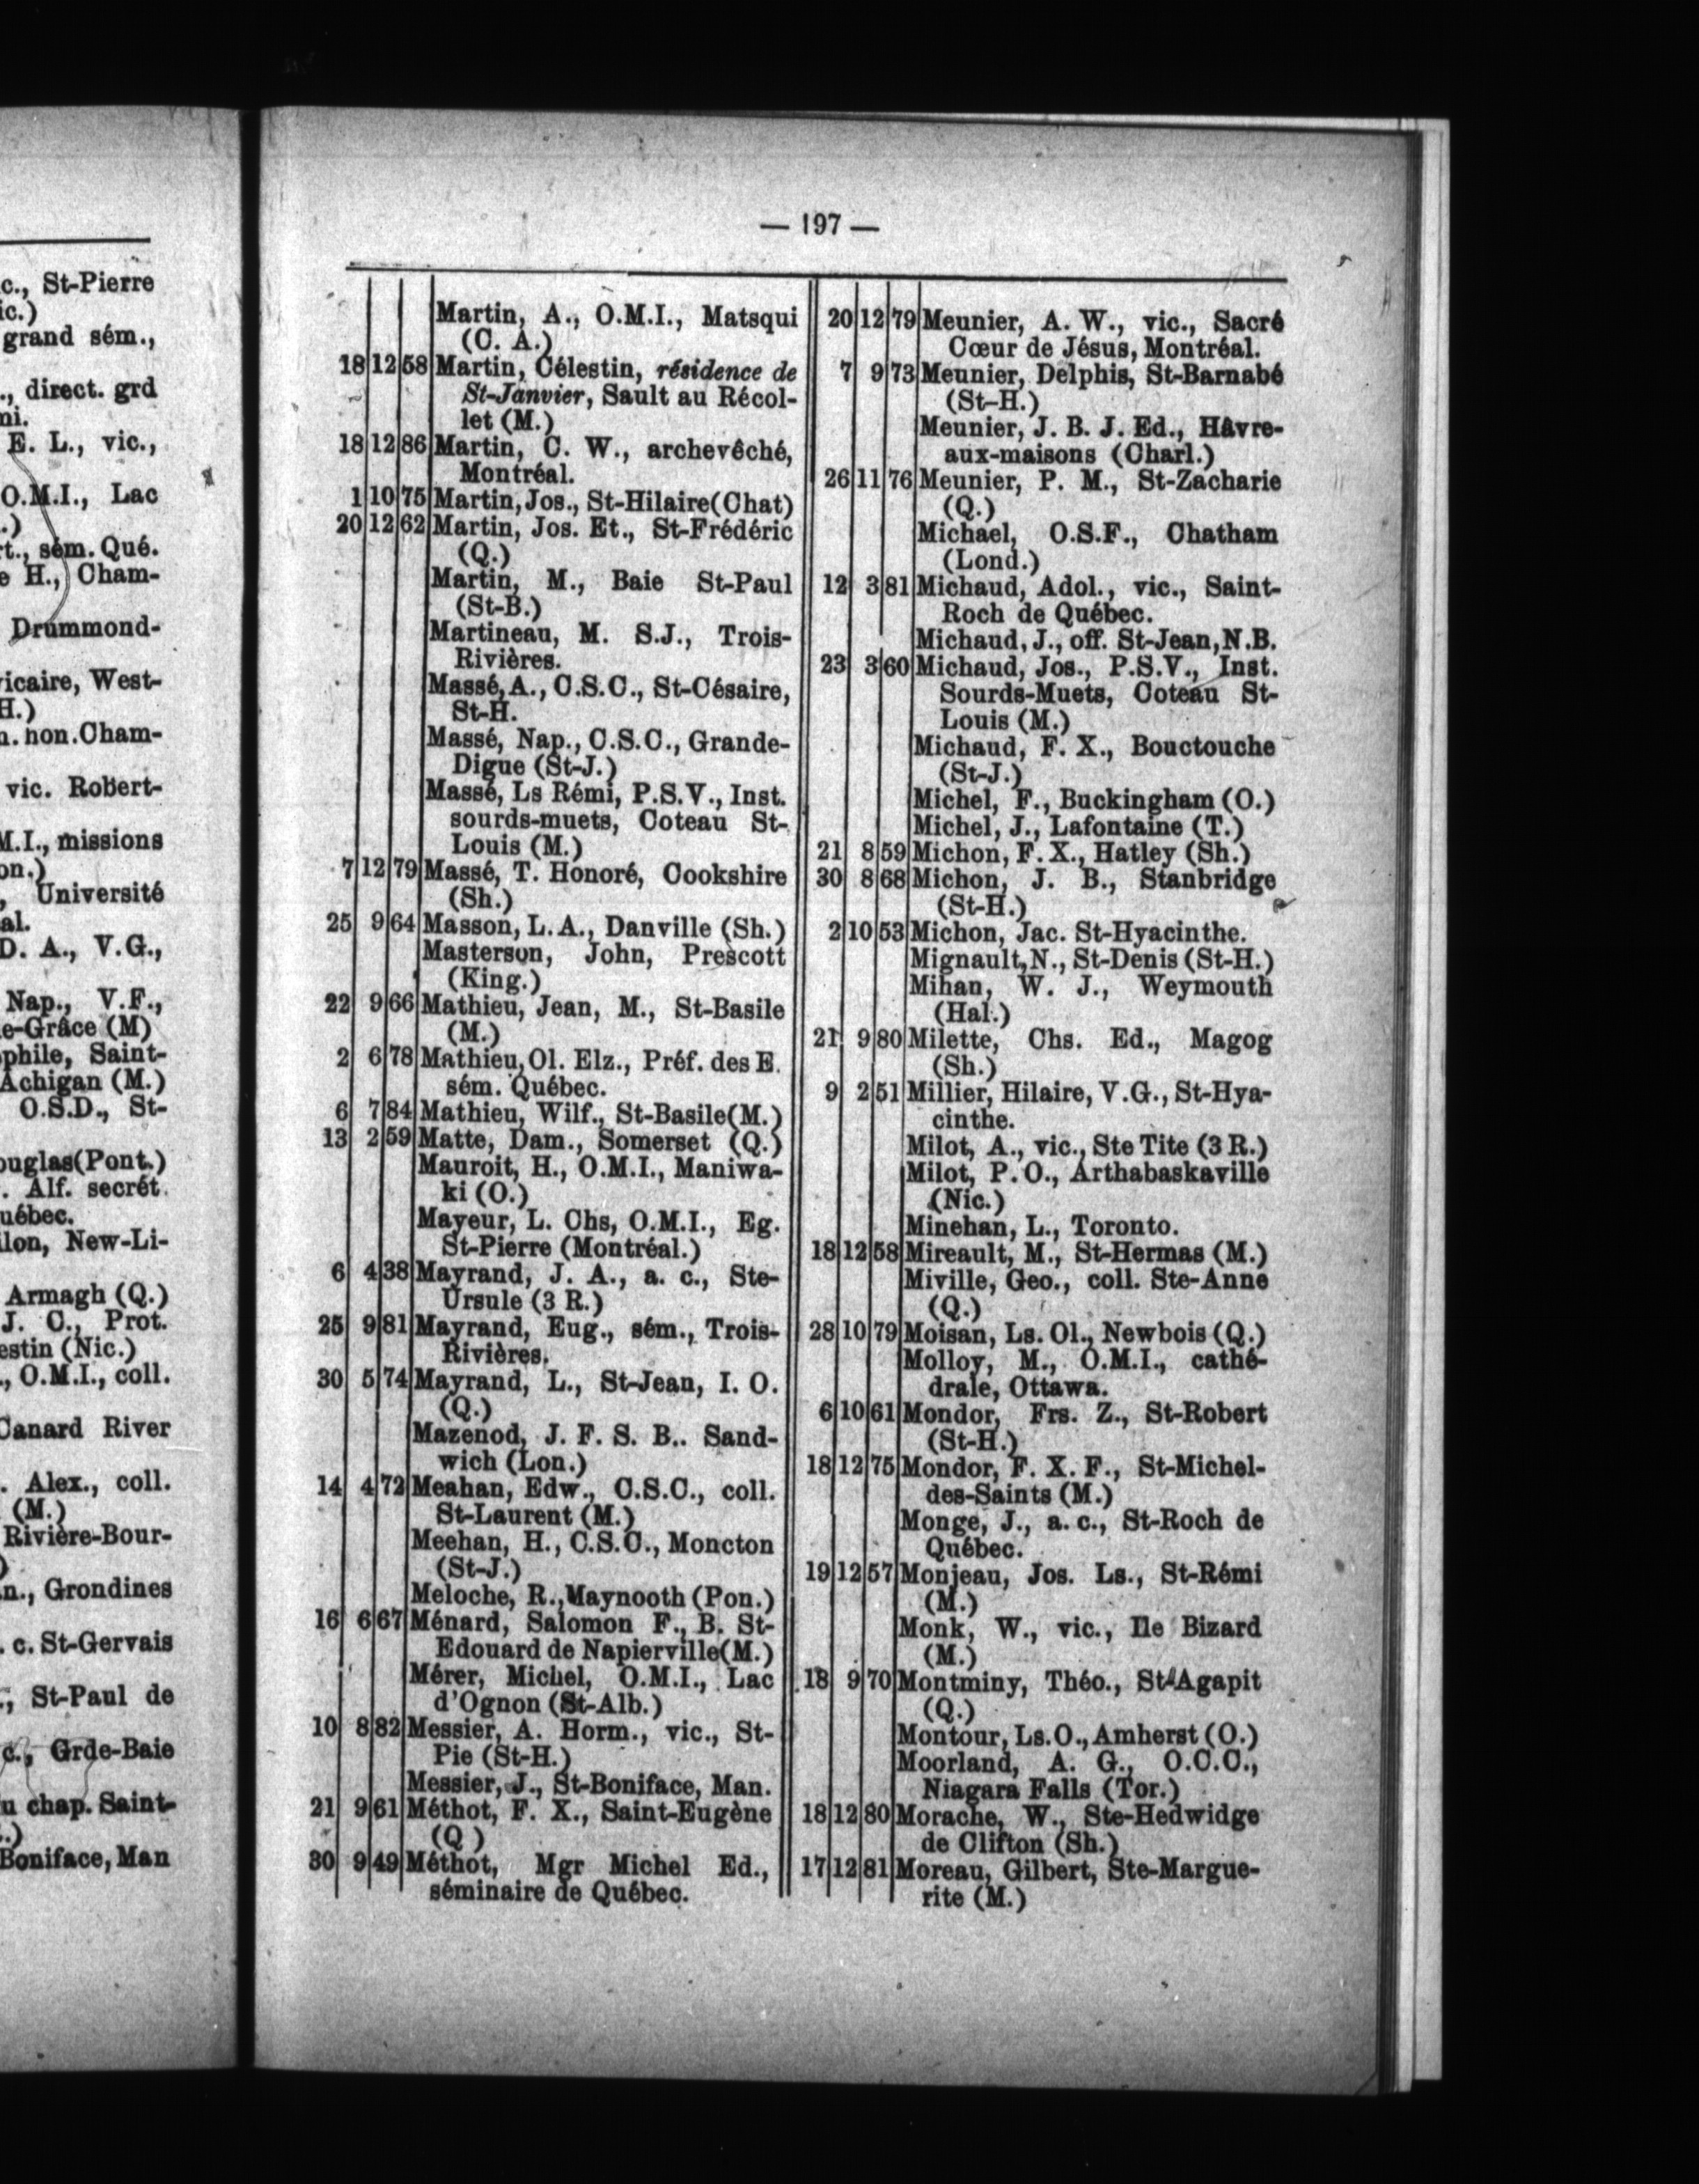 c., St-Pierre
ic.)
grand sém.,
., direct. grd
mi.
E. L., vic.,
O.M.I., Lac
.)
rt., sém. Qué.
e H., Cham-
Drummond-
vicaire, West-
H.)
n. hon. Cham-
vic. Robert-
M.I., missions
on.)
, Université
al.
D. A., V.G.,
Nap., V.F.,
e-Grâce (M)
phile, Saint-
Achigan (M.)
O.S.D., St-
ouglas (Pont.)
. Alf. secrét.
uébec.
lon, New-Li-
Armagh (Q.)
J. C., Prot.
estin (Nic.)
., O.M.I., coll.
Canard River
. Alex., coll.
(M.)
Rivière-Bour-
)
n., Grondines
. c. St-Gervais
., St-Paul de
c., Grde-Baie
u chap. Saint-
.)
Boniface, Man
— 197 —
Martin, A., O.M.I., Matsqui
(C. A.)
18 12 58 Martin, Célestin, résidence de
St-Janvier, Sault au Récol-
let (M.)
18 12 86 Martin, C. W., archevêché,
Montréal.
1 10 75 Martin, Jos., St-Hilaire (Chat)
20 12 62 Martin, Jos. Et., St-Frédéric
(Q.)
Martin, M., Baie St-Paul
(St-B.)
Martineau, M. S.J., Trois-
Rivières.
Massé, A., C.S.C., St-Césaire,
St-H.
Massé, Nap., C.S.C., Grande-
Digue (St-J.)
Massé, Ls Rémi, P.S.V., Inst.
sourds-muets, Coteau St-
Louis (M.)
7 12 79 Massé, T. Honoré, Cookshire
(Sh.)
25 9 64 Masson, L. A., Danville (Sh.)
Masterson, John, Prescott
(King.)
22 9 66 Mathieu, Jean, M., St-Basile
(M.)
2 6 78 Mathieu, Ol. Elz., Préf. des E.
sém. Québec.
6 7 84 Mathieu, Wilf., St-Basile (M.)
13 2 59 Matte, Dam., Somerset (Q.)
Mauroit, H., O.M.I., Maniwa-
ki (O.)
Mayeur, L. Chs, O.M.I., Eg.
St-Pierre (Montréal.)
6 4 38 Mayrand, J. A., a. c., Ste-
Ursule (3 R.)
25 9 81 Mayrand, Eug., sém., Trois-
Rivières.
30 5 74 Mayrand, L., St-Jean, I. O.
(Q.)
Mazenod, J. F. S. B.. Sand-
wich (Lon.)
14 4 72 Meahan, Edw., C.S.C., coll.
St-Laurent (M.)
Meehan, H., C.S.C., Moncton
(St-J.)
Meloche, R., Maynooth (Pon.)
16 6 67 Ménard, Salomon F., B. St-
Edouard de Napierville (M.)
Mérer, Michel, O.M.I., Lac
d'Ognon (St-Alb.)
10 8 82 Messier, A. Horm., vic., St-
Pie (St-H.)
Messier, J., St-Boniface, Man.
21 9 61 Méthot, F. X., Saint-Eugène
(Q )
30 9 49 Méthot, Mgr Michel Ed.,
séminaire de Québec.
20 12 79 Meunier, A. W., vic., Sacré
Cœur de Jésus, Montréal.
7 9 73 Meunier, Delphis, St-Barnabé
(St-H.)
Meunier, J. B. J. Ed., Hâvre-
aux-maisons (Charl.)
26 11 76 Meunier, P. M., St-Zacharie
(Q.)
Michael, O.S.F., Chatham
(Lond.)
12 3 81 Michaud, Adol., vic., Saint-
Roch de Québec.
Michaud, J., off. St-Jean, N.B.
23 3 60 Michaud, Jos., P.S.V., Inst.
Sourds-Muets, Coteau St-
Louis (M.)
Michaud, F. X., Bouctouche
(St-J.)
Michel, F., Buckingham (O.)
Michel, J., Lafontaine (T.)
21 8 59 Michon, F. X., Hatley (Sh.)
30 8 68 Michon, J. B., Stanbridge
(St-H.)
2 10 53 Michon, Jac. St-Hyacinthe.
Mignault, N., St-Denis (St-H.)
Mihan, W. J., Weymouth
(Hal.)
21 9 80 Milette, Chs. Ed., Magog
(Sh.)
9 2 51 Millier, Hilaire, V.G., St-Hya-
cinthe.
Milot, A., vic., Ste Tite (3 R.)
Milot, P. O., Arthabaskaville
(Nic.)
Minehan, L., Toronto.
18 12 58 Mireault, M., St-Hermas (M.)
Miville, Geo., coll. Ste-Anne
(Q.)
28 10 79 Moisan, Ls. Ol., Newbois (Q.)
Molloy, M., O.M.I., cathé-
drale, Ottawa.
6 10 61 Mondor, Frs. Z., St-Robert
(St-H.)
18 12 75 Mondor, F. X. F., St-Michel-
des-Saints (M.)
Monge, J., a. c., St-Roch de
Québec.
19 12 57 Monjeau, Jos. Ls., St-Rémi
(M.)
Monk, W., vic., Ile Bizard
(M.)
18 9 70 Montminy, Théo., St-Agapit
(Q.)
Montour, Ls. O., Amherst (O.)
Moorland, A. G., O.C.C.,
Niagara Falls (Tor.)
18 12 80 Morache, W., Ste-Hedwidge
de Clifton (Sh.)
17 12 81 Moreau, Gilbert, Ste-Margue-
rite (M.)